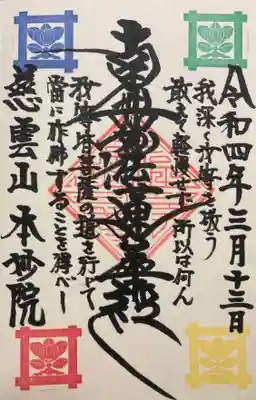 令和四年三月十三日
我深く汝等を敬う
敢て軽慢せず 所以は何ん
南無妙法蓮華経
汝等皆菩薩の道を行じて
當に作佛することを得べし
慈雲山 本妙院